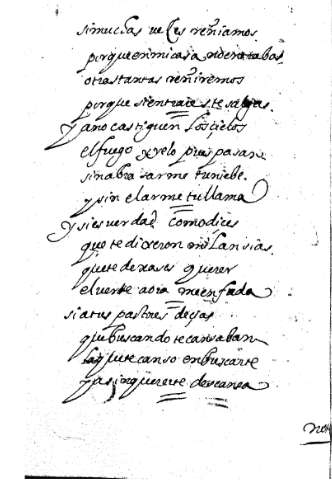 si muchas veçes reñiamos
porque en mi casa no entrabas
otras tantas reñiremos
porque si entrais te salgas
y a no castiguen los çielos
el fuego y yelo pues pasan
sin abrasarme tu niebe
y sin elarme tu llama
y si es verdad como diçes
que te dixeron mis ansias
que te dexases querer
el verte aora me enfada
si a tus pastores deçias
que buscando te cansaban
que te canso en buscarte
y a sin quererte descansa